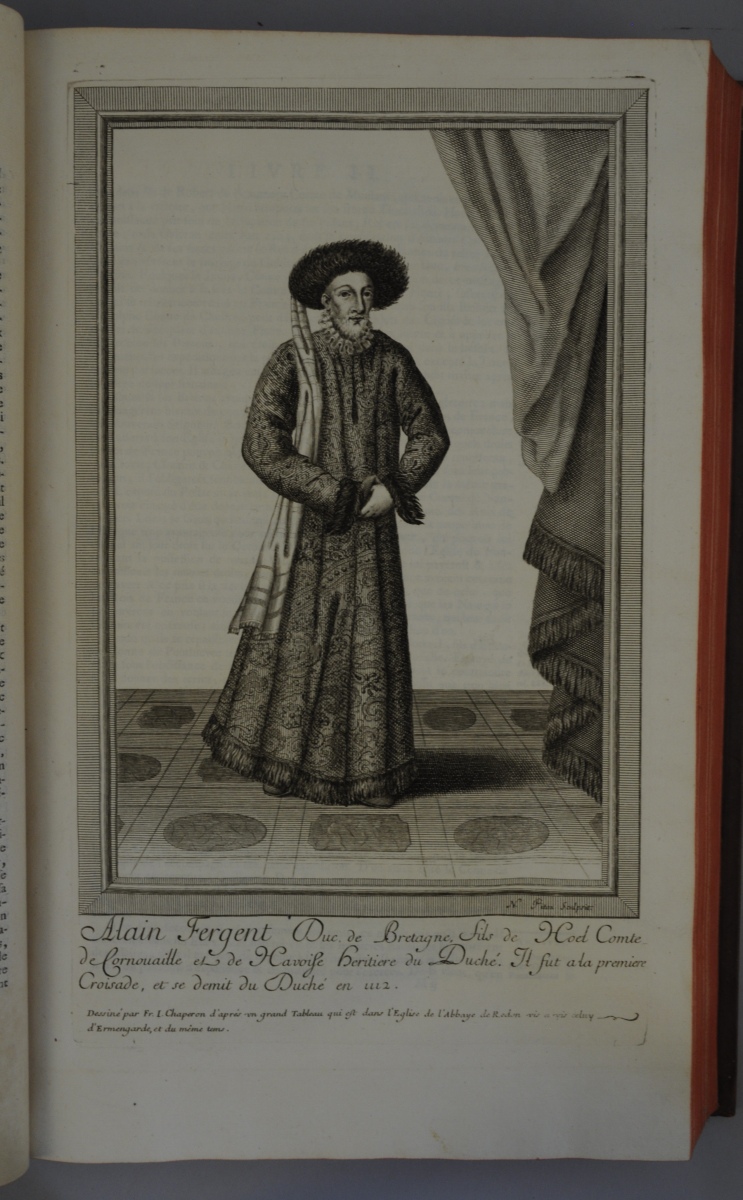 N. Pitau Sculpsit
Alain Fergent Duc de Bretagne, fils de Hoel Comte
de Cornouaille et de Havoise heritiere du Duché. Il fut a la premiere
Croisade, et se demit du Duché en 1112.
Dessiné par Fr. I. Chaperon d'aprés un grand Tableau qui est dans l'Eglise de l'Abbaye de Redon vis a vis celuy
d'Ermengarde, et du même tems.